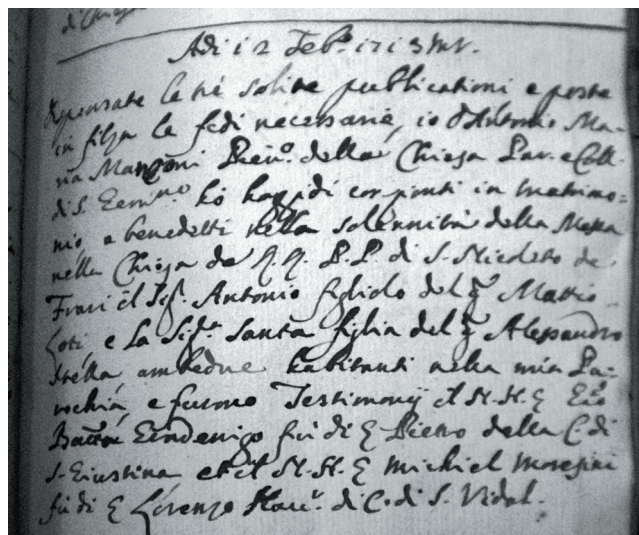 di Chiesa
Adi 12 Feb.º 1713 M.V.
Dispensate le tre solite publicationi e poste
in filza le fedi necessarie, io D. Antonio Ma-
ria Manzoni Piev.º della Chiesa Par. e Coll.
di S. ho hoggidi congionti in matrimo=
nio, e benedetti nella solennità della Messa
nella Chiesa de R.R. P.P. di S. Nicoleto de
Frari il Sig.r Antonio figliolo del q. Mattio
e la Sig.ra Santa figlia del q. Alessandro
Stella ambedue habitanti nella mia Pa=
rochia, e furono Testimonij il N.H. &
Batta Zendenigo fù di & Pietro della C. di
S. Giustina et il N.H. & Michiel Moresini
fù di & Lorenzo di C. di S. Vidal.